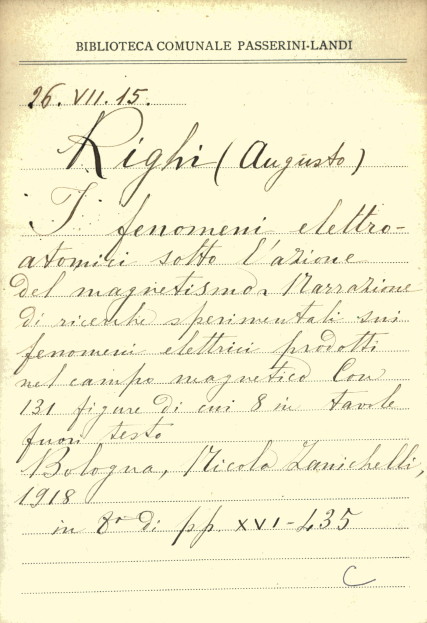 BIBLIOTECA COMUNALE PASSERINI-LANDI
26. VII. 15.
Righi (Augusto)
I fenomeni elettro-
atomici sotto l'azione
del magnetismo. Narrazione
di ricerche sperimentali sui
fenomeni elettrici prodotti
nel campo magnetico Con
131 figure di cui 8 in tavole
fuori testo
Bologna, Nicola Zanichelli,
1918
in 8° di pp. XVI-435
C